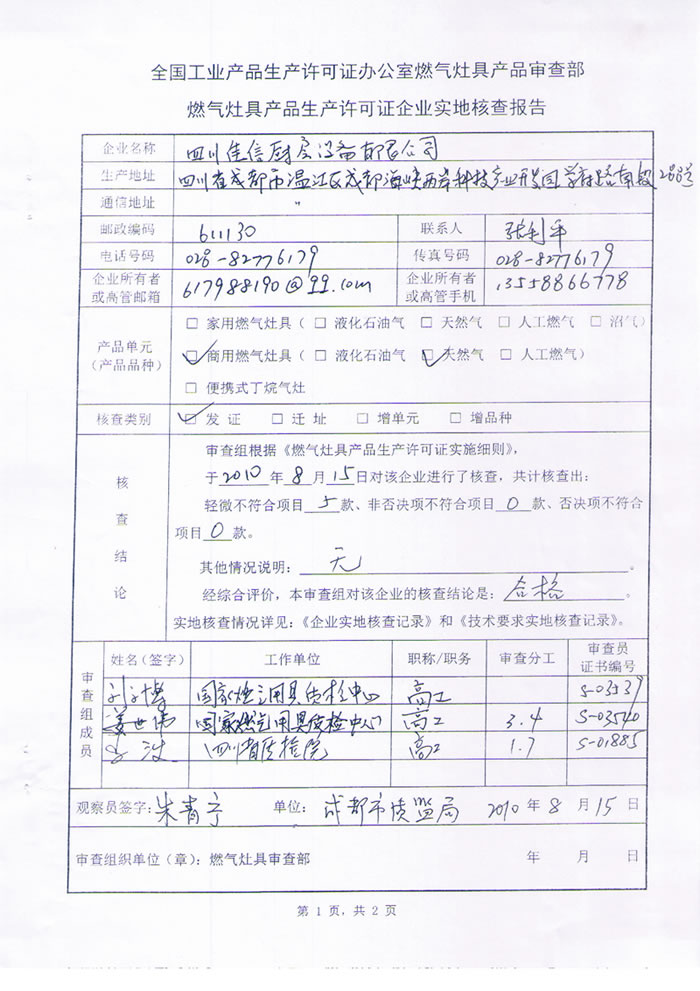 全国工业产品生产许可证办公室燃气灶具产品审查部
燃气灶具产品生产许可证企业实地核查报告
企业名称 四川佳信厨房设备有限公司
生产地址 四川省成都市温江区成都海峡两岸科技产业开发园学府路南段
通信地址 〃
邮政编码 611130 联系人 张利平
电话号码 028-82776179 传真号码 028-82776179
企业所有者或高管邮箱 617988190@qq.com 企业所有者或高管手机 13558866778
产品单元（产品品种）
□ 家用燃气灶具（ □ 液化石油气 □ 天然气 □ 人工燃气 □ 沼气）
☑ 商用燃气灶具（ □ 液化石油气 ☑ 天然气 □ 人工燃气）
□ 便携式丁烷气灶
核查类别 ☑ 发 证 □ 迁 址 □ 增单元 □ 增品种
核查结论
审查组根据《燃气灶具产品生产许可证实施细则》，
于2010 年 8 月 15日对该企业进行了核查，共计核查出：
轻微不符合项目 5 款、非否决项不符合项目 0 款、否决项不符合
项目 0 款。
其他情况说明： 无 。
经综合评价，本审查组对该企业的核查结论是： 合格 。
实地核查情况详见：《企业实地核查记录》和《技术要求实地核查记录》。
审查组成员
姓名（签字） 工作单位 职称/职务 审查分工 审查员证书编号
国家燃气用具质检中心 高工 S-03539
姜世伟 国家燃气用具质检中心 高工 3.4 S-03540
波 四川省质检院 高工 1.7 S-01885
观察员签字：朱青宁 单位： 成都市质监局 2010 年 8 月 15 日
审查组织单位（章）：燃气灶具审查部 年 月 日
第 1 页，共 2 页